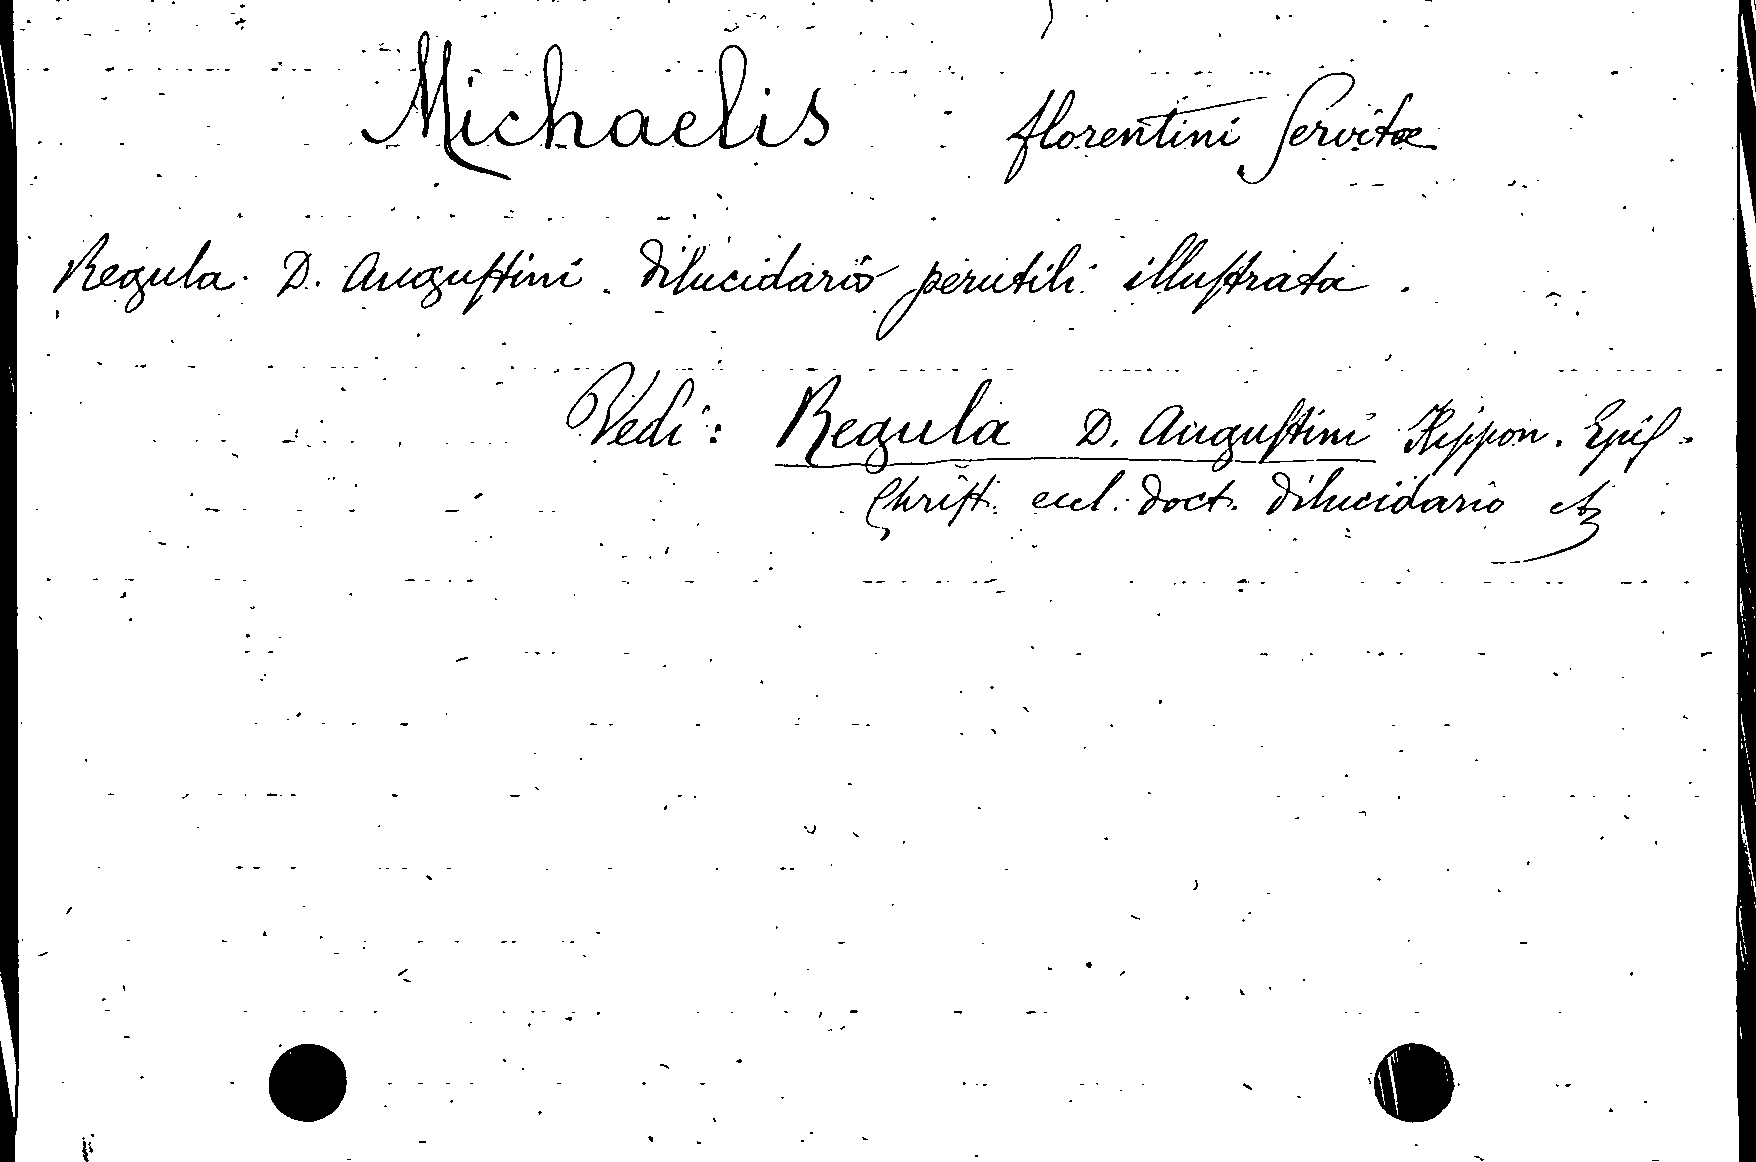 Michaelis florentini Servitæ
Regula D. Auguſtini dilucidario perutili illuſtrata.
Vedi: Regula D. Auguſtini Hippon. Epiſ.
Chriſt. eccl. doct. dilucidario etc